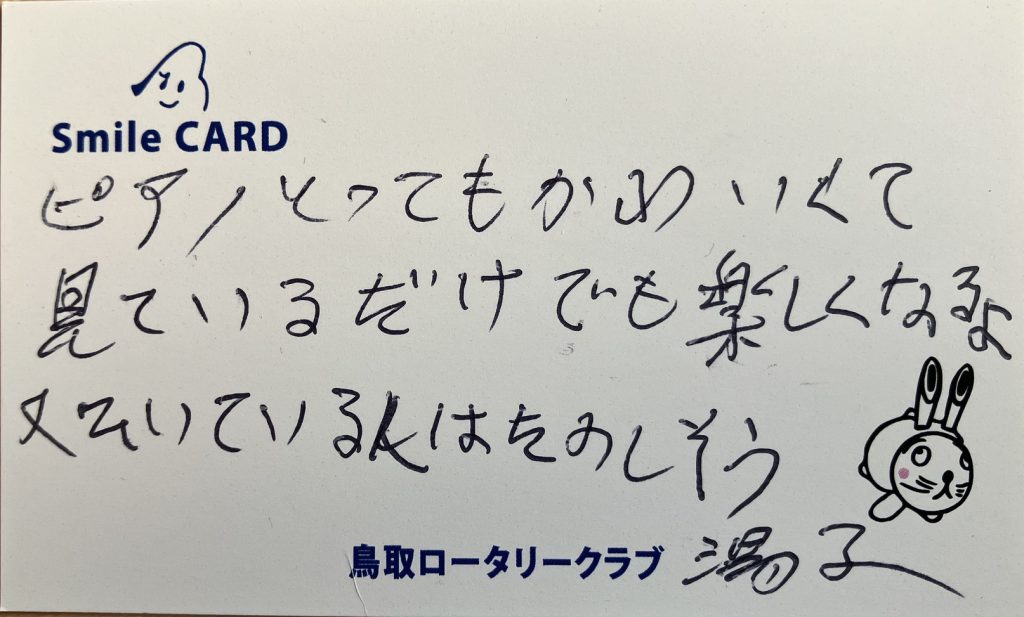 Smile CARD
ピアノとってもかわいくて
見ているだけでも楽しくなるよ
ている人はたのしそう
鳥取ロータリークラブ 湯子